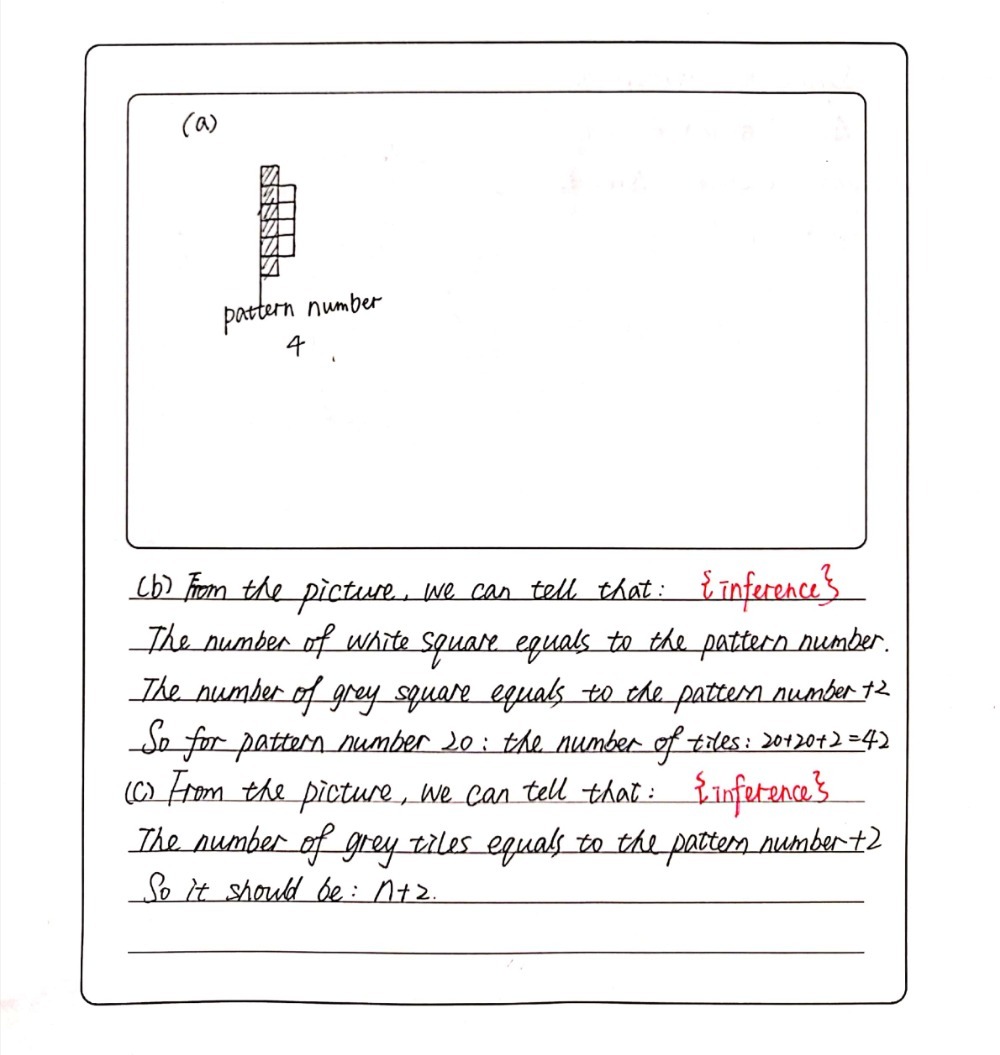 (a)
pattern number
4
(b) From the picture, we can tell that: {inference}
The number of white square equals to the pattern number.
The number of grey square equals to the pattern number +2
So for pattern number 20: the number of tiles: 20+20+2=42
(C) From the picture, we can tell that: {inference}
The number of grey tiles equals to the pattern number+2
So it should be: n+2.